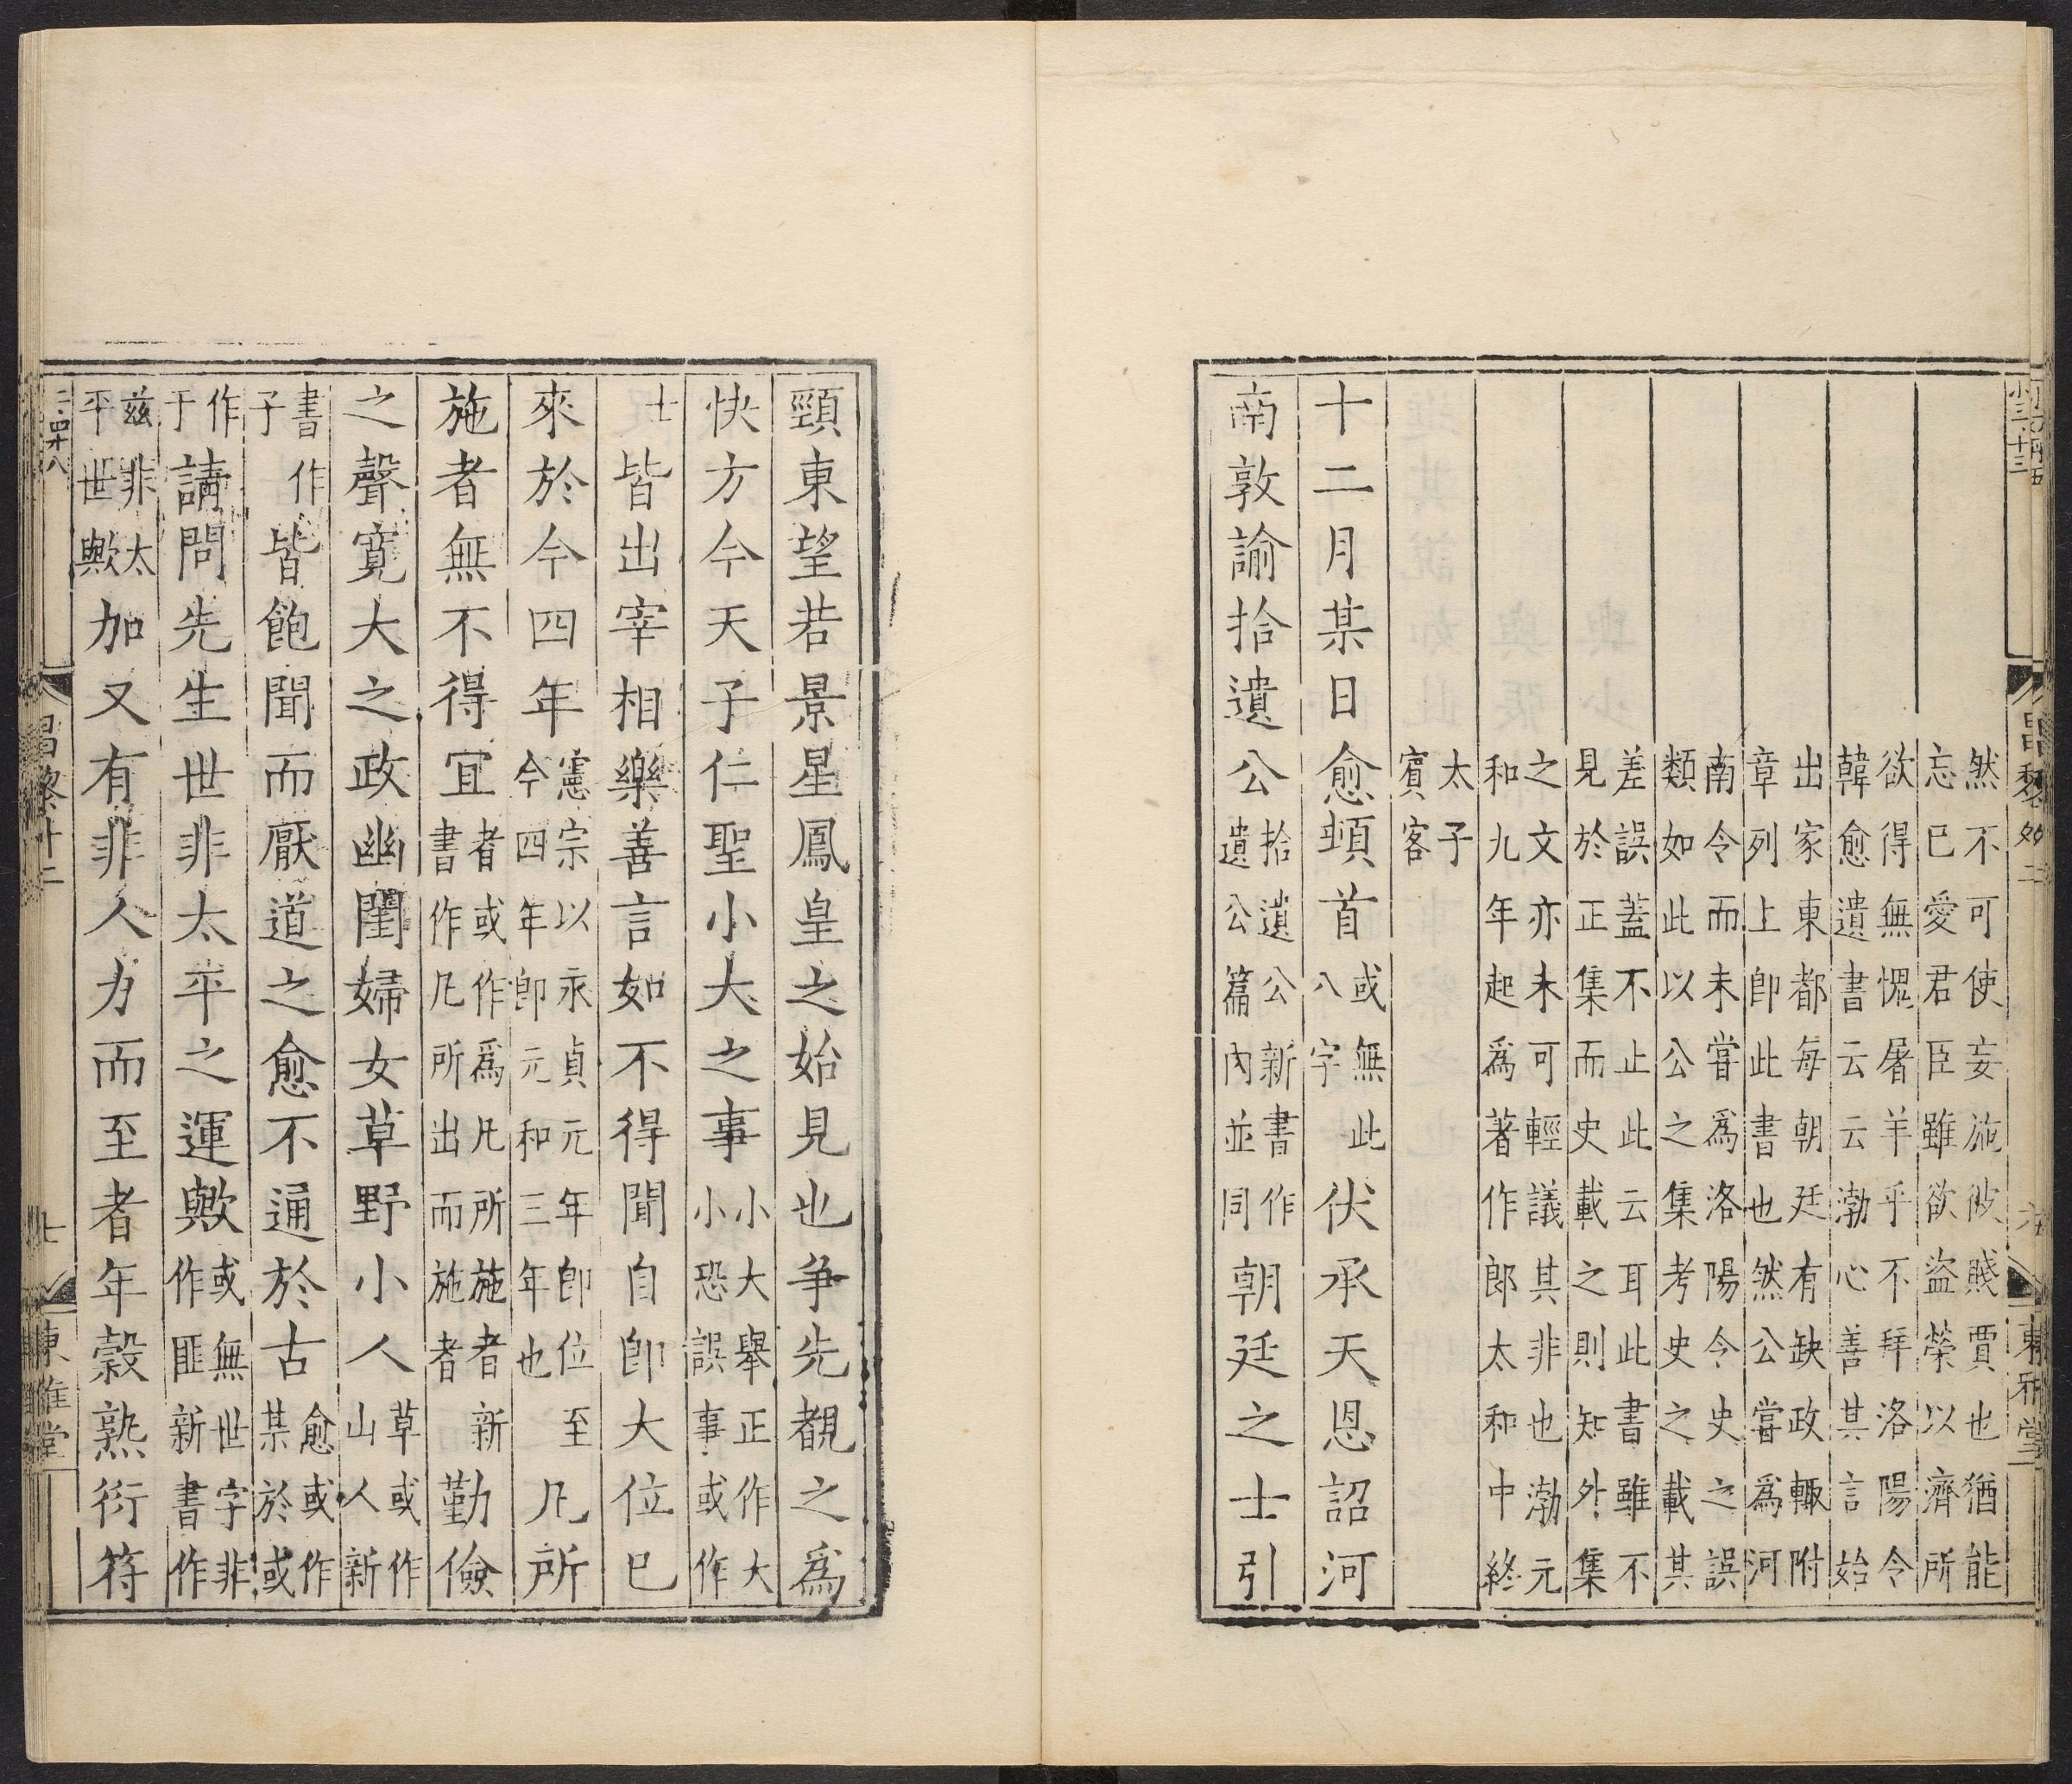 然不可使妄施彼賤賈也猶能
忘已愛君臣雖欲盜榮以濟所
欲得無愧屠羊乎不拜洛陽令
韓愈遺書云云渤心善其言始
出家東都每朝廷有缺政輙附
章列上即此書也然公當爲河
南令而未嘗爲洛陽令史之誤
類如此以公之集考史之載其
差誤蓋不止此云耳此書雖不
見於正集而史載之則知外集
之文亦未可輕議其非也渤元
和九年起爲著作郎太和中終
太子
賓客
十二月某日愈頓首或無此八字伏承天恩詔河
南敦諭拾遺公拾遺公新書作遺公篇內並同朝廷之士引
頸東望若景星鳳皇之始見也争先覩之爲
快方今天子仁聖小大之事小大舉正作大小恐誤事或作
士皆出宰相樂善言如不得聞自即大位已
來於今四年憲宗以永貞元年即位至今四年即元和三年也凡所
施者無不得宜者或作爲凡所施者新書作凡所出而施者勤儉
之聲寛大之政幽閨婦女草野小人草或作山人新
書作子皆飽聞而厭道之愈不通於古愈或作某於或
作于請問先生世非太平之運歟或無世字非作匪新書作
兹非太平世歟加又有非人力而至者年穀熟衍符
昌黎 七 東雅堂